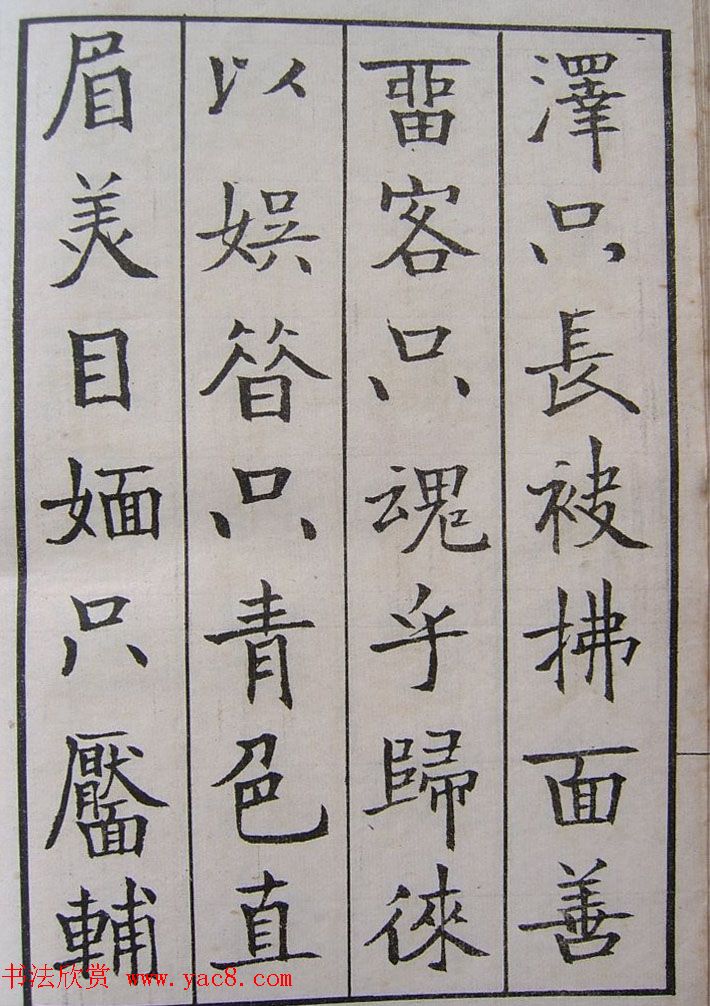 澤只長袂拂面善
畱客只魂乎歸徠
以娛㫺只青色直
眉美目媔只靨輔
书法欣赏 www.yac8.com